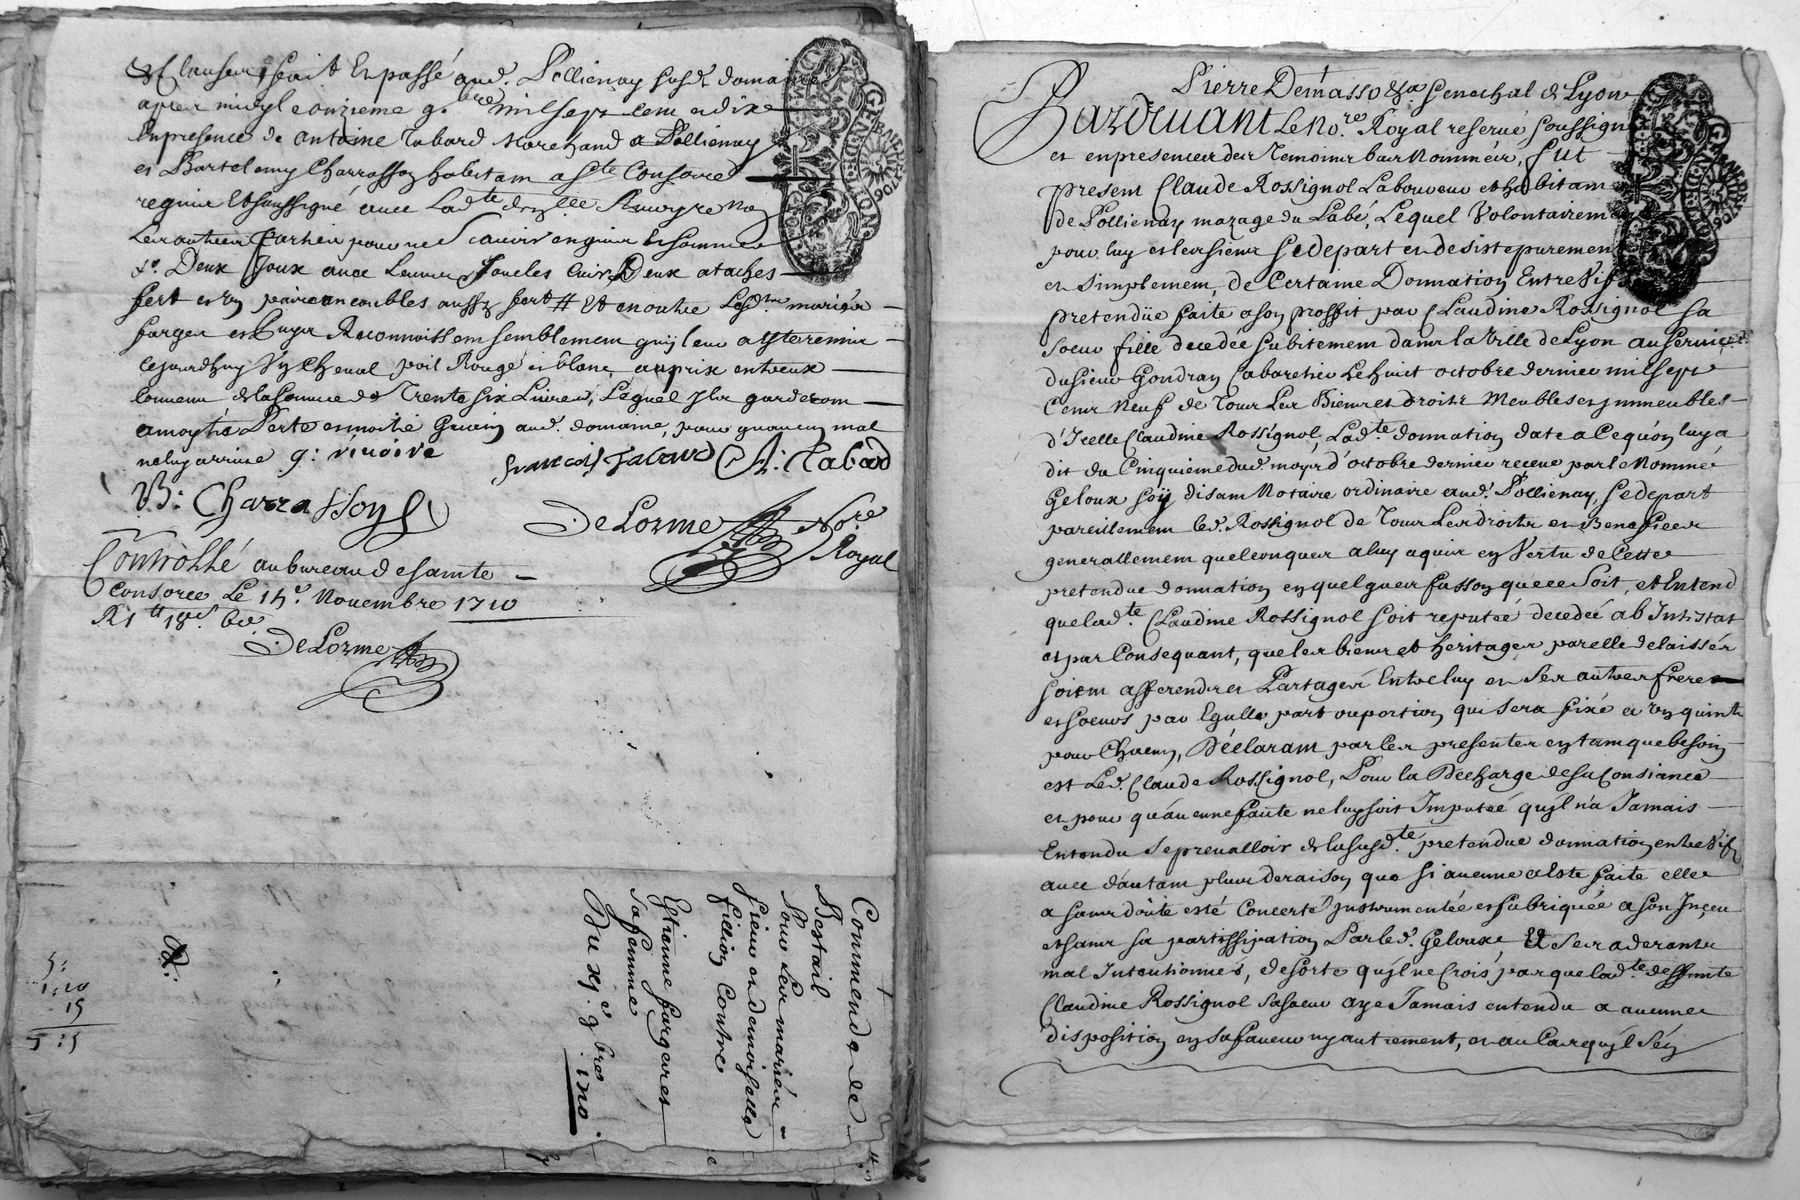 & Clauses, fait et passé aud. Pollienay susd. domaine
apres midy le onzieme 9.bre mil sept cent et dix
en presence de antoine Tabard Marchand a Pollienay
et Bartelemy Charrasson habitant a Ste Consorce
requis et soussigné avec Lad.te dem.lle
Les autres parties pour ne scavoir enquis et sommés
Deux Joux avec Leurs Joucles Cuir Deux ataches
fert et un paire ancoubles aussy fert # Et en outre Lesd. mariés
farges et Reconnoissent semblement qu'il leur a esté remis
cejourdhuy un Cheval poil Rouge et blanc au prix entreux
convenu de la somme de Trente six Livres, Lequel Ils garderont
a moytié Perte et moitié Guain aud. domaine, pour quaucun mal
ne luy arrive g: vivoire françois Tabard A: Tabard
B: Charrasson
DeLorme No.re
Royal
Controllé au bureau de sainte
Consorce Le 14.e Novembre 1710
R 1 tt 18 s.
DeLorme
Commende de
Bestail
Pour Les mariés
sieur et demoiselle
fillion Contre
Etienne fargeres
sa femme
Du xj.e 9.bre 1710
5:
1:10
15
GENER. DE LION
Pierre Demasso &.a Senechal de Lyon
Pardevant Le No.re Royal reservé soussigné
et en presence des Temoins bas Nommés, fut
present Claude Rossignol Laboureur et habitant
de Pollienay mazage du Labé, Lequel Volontairement
pour luy et les siens se depart et desiste purement
et simplement, de Certaine Donnation Entre Vifs
pretendüe faite a son proffit par Claudine Rossignol sa
soeur fille decedée subitement dans la ville de Lyon au service
du sieur Gondran Cabaretier Le huit octobre dernier mil sept
Cent Neuf de Tous Les Biens et droits Meubles et immeubles
d'Icelle Claudine Rossignol, Lad.te donnation datée a Ce qu'on luy a
dit du Cinquieme dud. moys d'octobre dernier receue par le Nommé
Geloux soy disant Notaire ordinaire aud. Pollienay, se depart
pareillement led. Rossignol de Tous Les droits et Benefices
generallement quelconques a luy aquis en Vertu de Cette
pretendue donnation en quelques fasson que ce soit, et Entend
que lad.te Claudine Rossignol soit reputée decedée ab Intestat
et par Consequant, que les biens et heritages par elle delaissés
soient afferendes et Partagés Entre luy et Ses autres freres
et soeurs par Egalle part ou portion qui sera fixé a un quint
pour Chacun, Déclarant par les presentes en tant que besoin
est Led. Claude Rossignol, Pour la Décharge de sa Consiance
et pour qu'aucune faute ne luy soit Imputéé qu'il n'a Jamais
Entendu se prevalloir de la susd.te pretendue donnation entre Vifs
avec d'autant plus de raison que si aucune a esté faite elle
a sans doute esté Concerté Instrumentée et fabriquée a son Inçeu
et sans sa partissipation Par led. Geloux, & Ses aderants
mal Intentionnés, de sorte qu'il ne Crois pas que lad.te deffunte
Claudine Rossignol sa soeur aye Jamais entendu a aucune
disposition en sa faveur ny autrement, et au Cas qu'il s'en